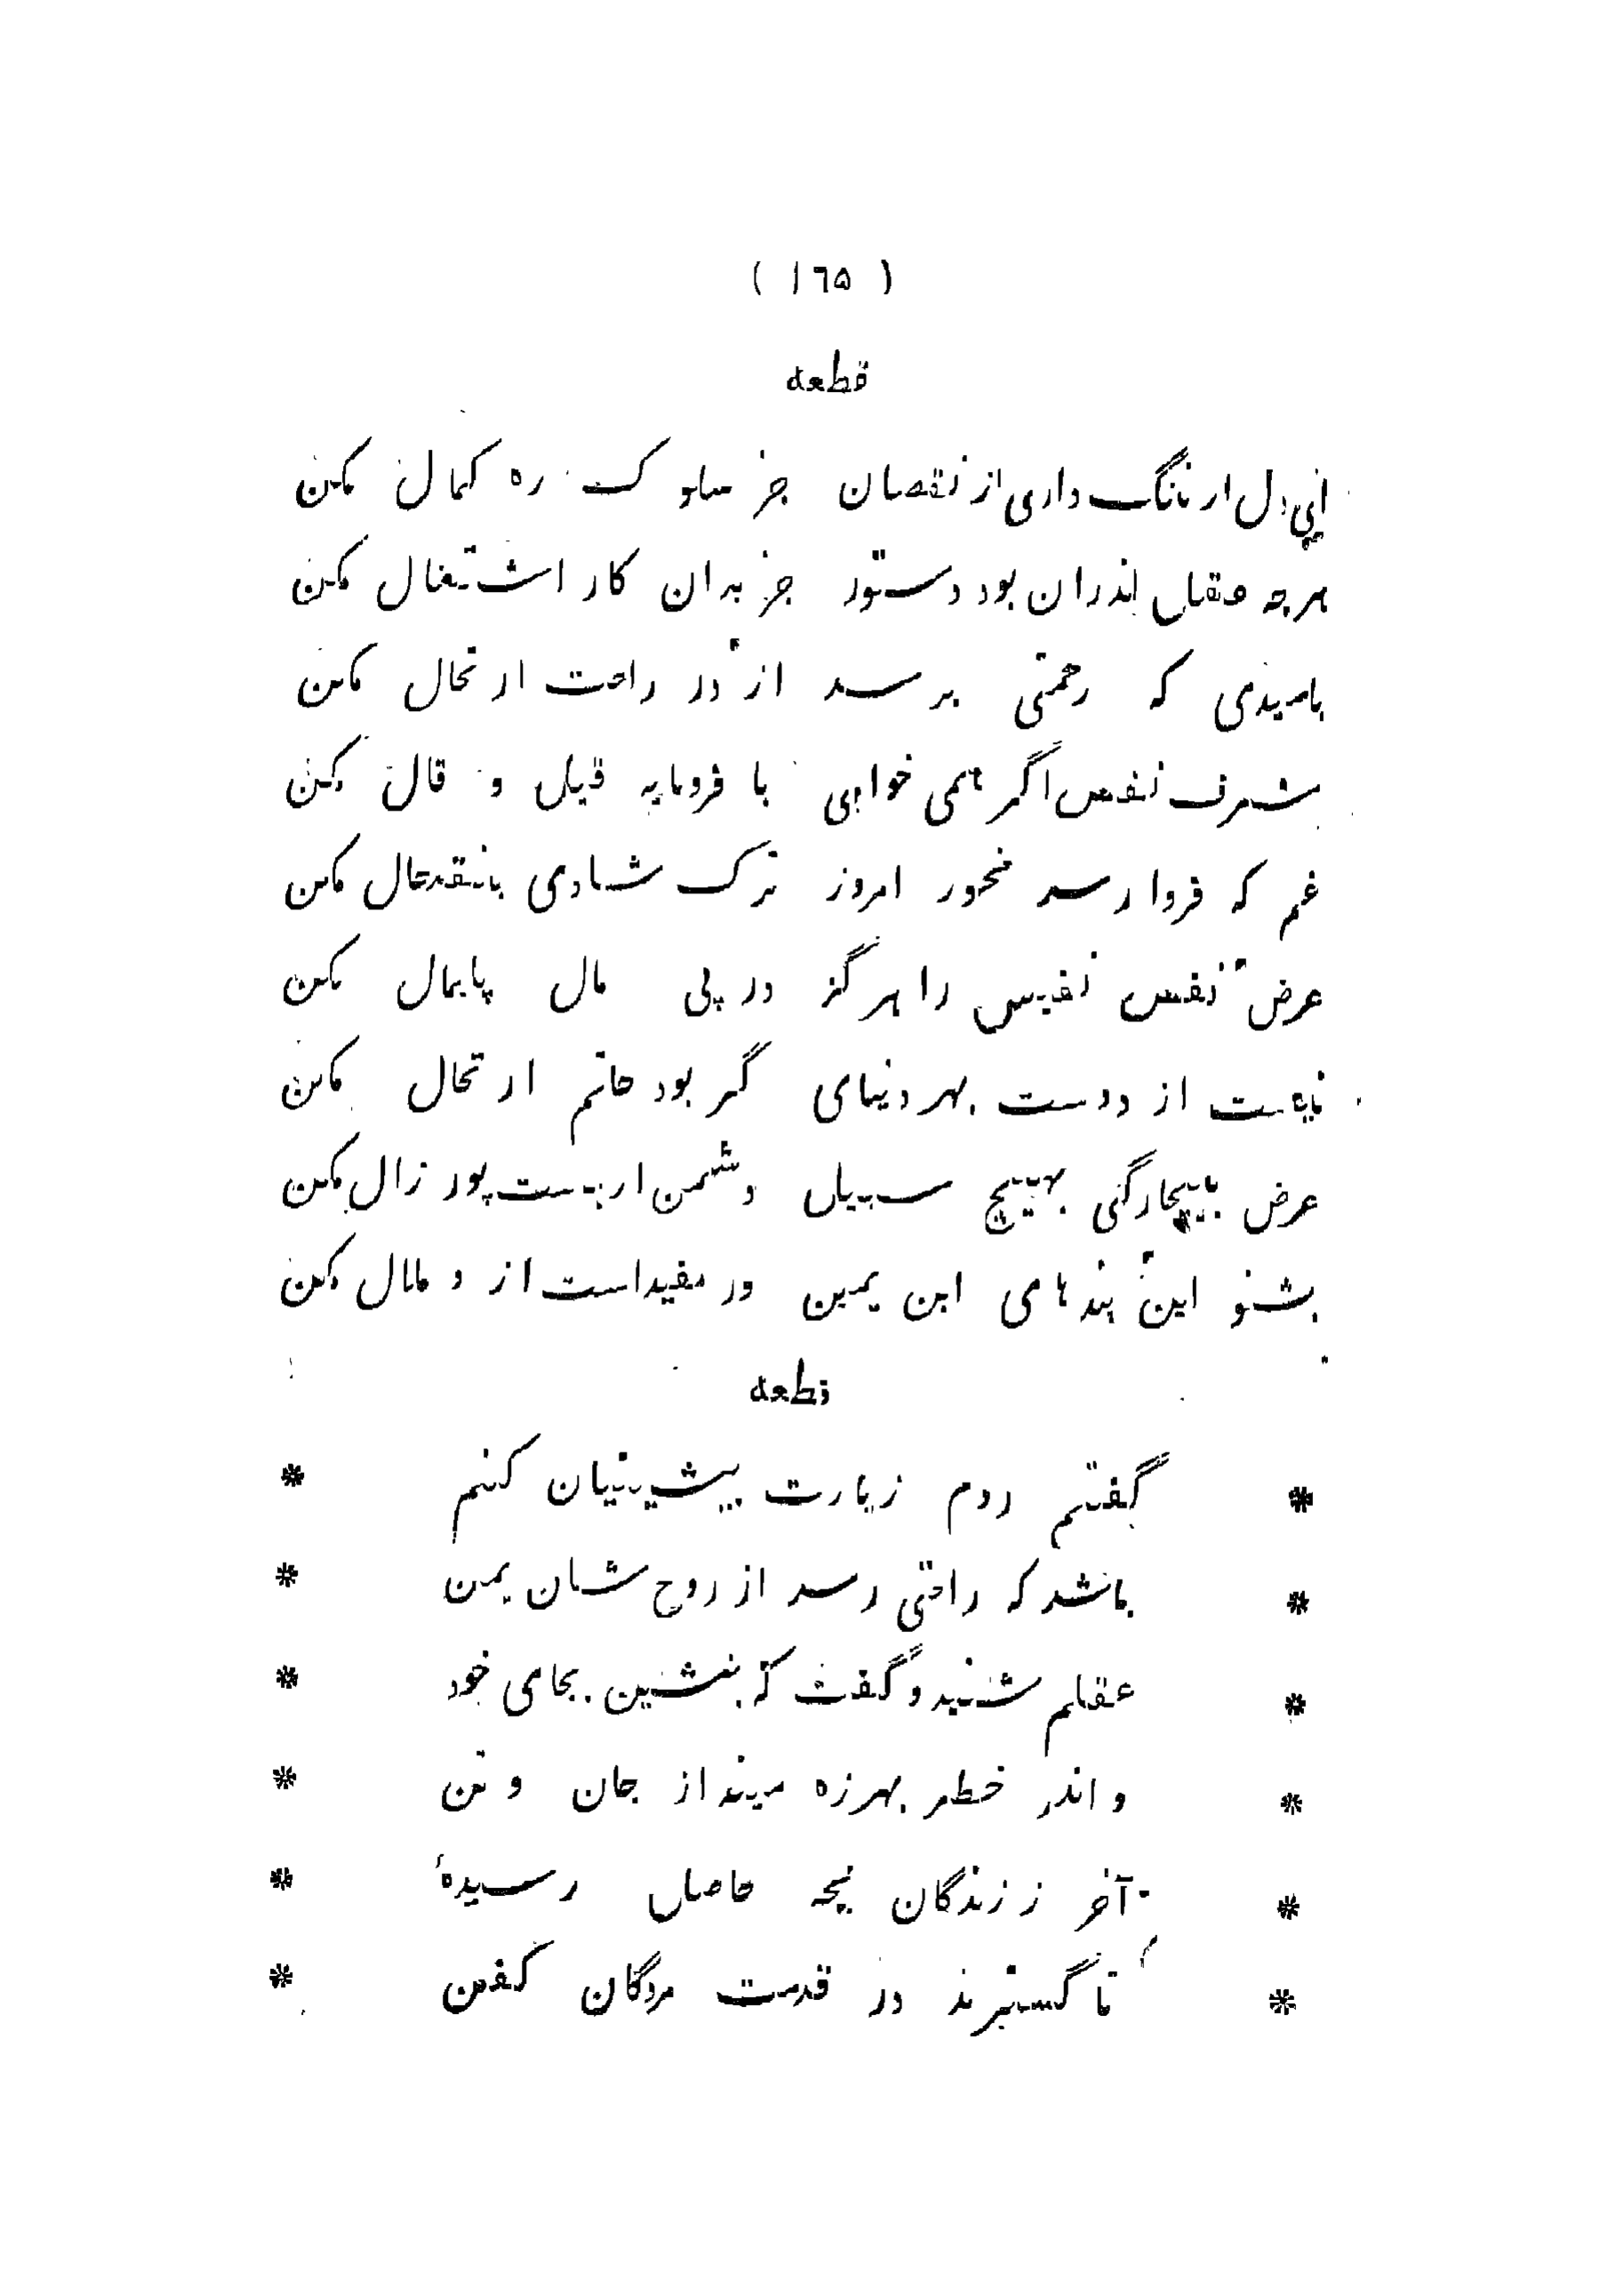 ( ١٦۵ )
قطعه
ای دل ار ننگ داری از نقصان جز سلوک ره کمال مکن
هرچه عقل اندران بود دستور جز بدان کار اشتغال مکن
بامیدی که رحمتی برسد از در راحت ارتحال مکن
شرف نفس اگر همی خواهی با فرومایه قیل و قال مکن
غم که فردا رسد مخور امروز ترک شادی بنقد حال مکن
عرض نفس نفیس را هرگز در پی مال پایمال مکن
از دوست بهر دنیای گر بود حاتم ارتحال مکن
عرض بیچارگی بهیچ سبیل دشمن ار هست پور زال مکن
بشنو این پندهای ابن یمین ور مفیداست از و ملال مکن
قطعه
* گفتم روم زیارت پیشینیان کنم *
* باشد که راحتی رسد از روح شان بمن *
* عقلم شنید و گفت که بنشین بجای خود *
* و اندر خطر بهرزه مینداز جان و تن *
* آخر ز زندگان بچه حاصل رسیدهٔ *
* تا گسترند در قدمت مردگان کفن *